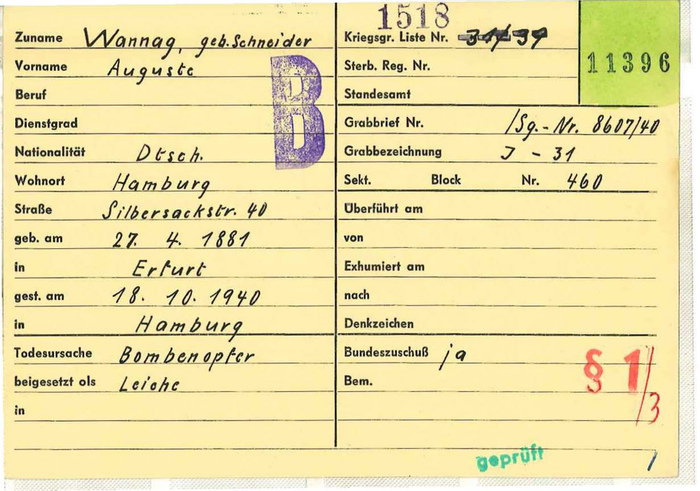 1518
Zuname Wannag, geb. Schneider
Vorname Auguste
Beruf
Dienstgrad
Nationalität Dtsch.
Wohnort Hamburg
Straße Silbersackstr. 40
geb. am 27. 4. 1881
in Erfurt
gest. am 18. 10. 1940
in Hamburg
Todesursache Bombenopfer
beigesetzt als Leiche
in
B
Kriegsgr. Liste Nr. 31/39
11396
Sterb. Reg. Nr.
Standesamt
Grabbrief Nr. /Sg.-Nr. 8607/40
Grabbezeichnung J - 31
Sekt. Block Nr. 460
Überführt am
von
Exhumiert am
nach
Denkzeichen
Bundeszuschuß ja
Bem.
§ 1/3
geprüft